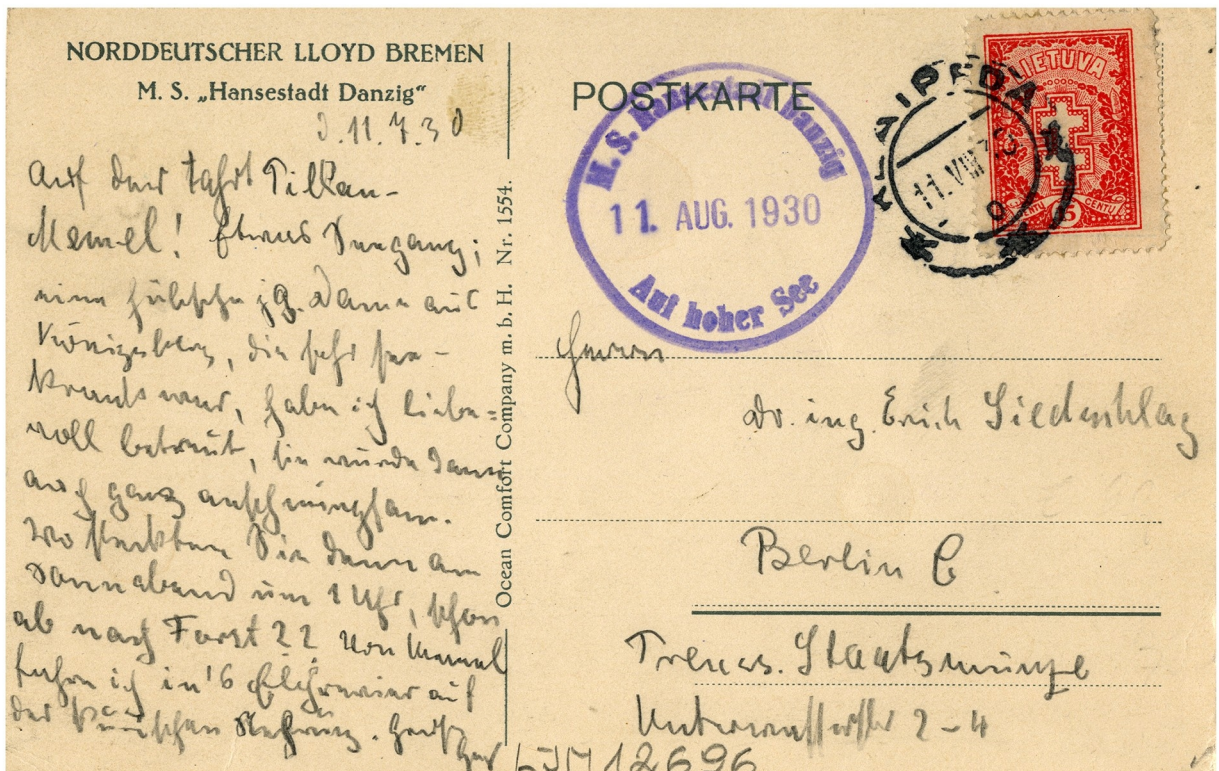 NORDDEUTSCHER LLOYD BREMEN
M. S. „Hansestadt Danzig“
11.7.30
Auf der Fahrt Pillau-
Memel! Etwas Seegang;
eine hübsche jg. Dame aus
Königsberg, die sehr see-
krank war, habe ich liebe-
voll betreut, sie wurde dann
auch ganz anschmiegsam.
Wo steckten Sie denn am
Sonnabend um 1 Uhr, schon
ab nach Forst?? Von Memel
fahre ich in's Elchrevier auf
der Kurischen Nehrung. Gruß
Ocean Comfort Company m. b. H. Nr. 1554.
POSTKARTE
M. S. Hansestadt Danzig
11. AUG. 1930
Auf hoher See
KLAIPEDA
11. VIII 30
LIETUVA
15
CENTŲ
Herrn
Dr. ing. Erich Siedschlag
Berlin C
Preuss. Staatsmünze
Unterwasserstr 2-4
LJM 12696